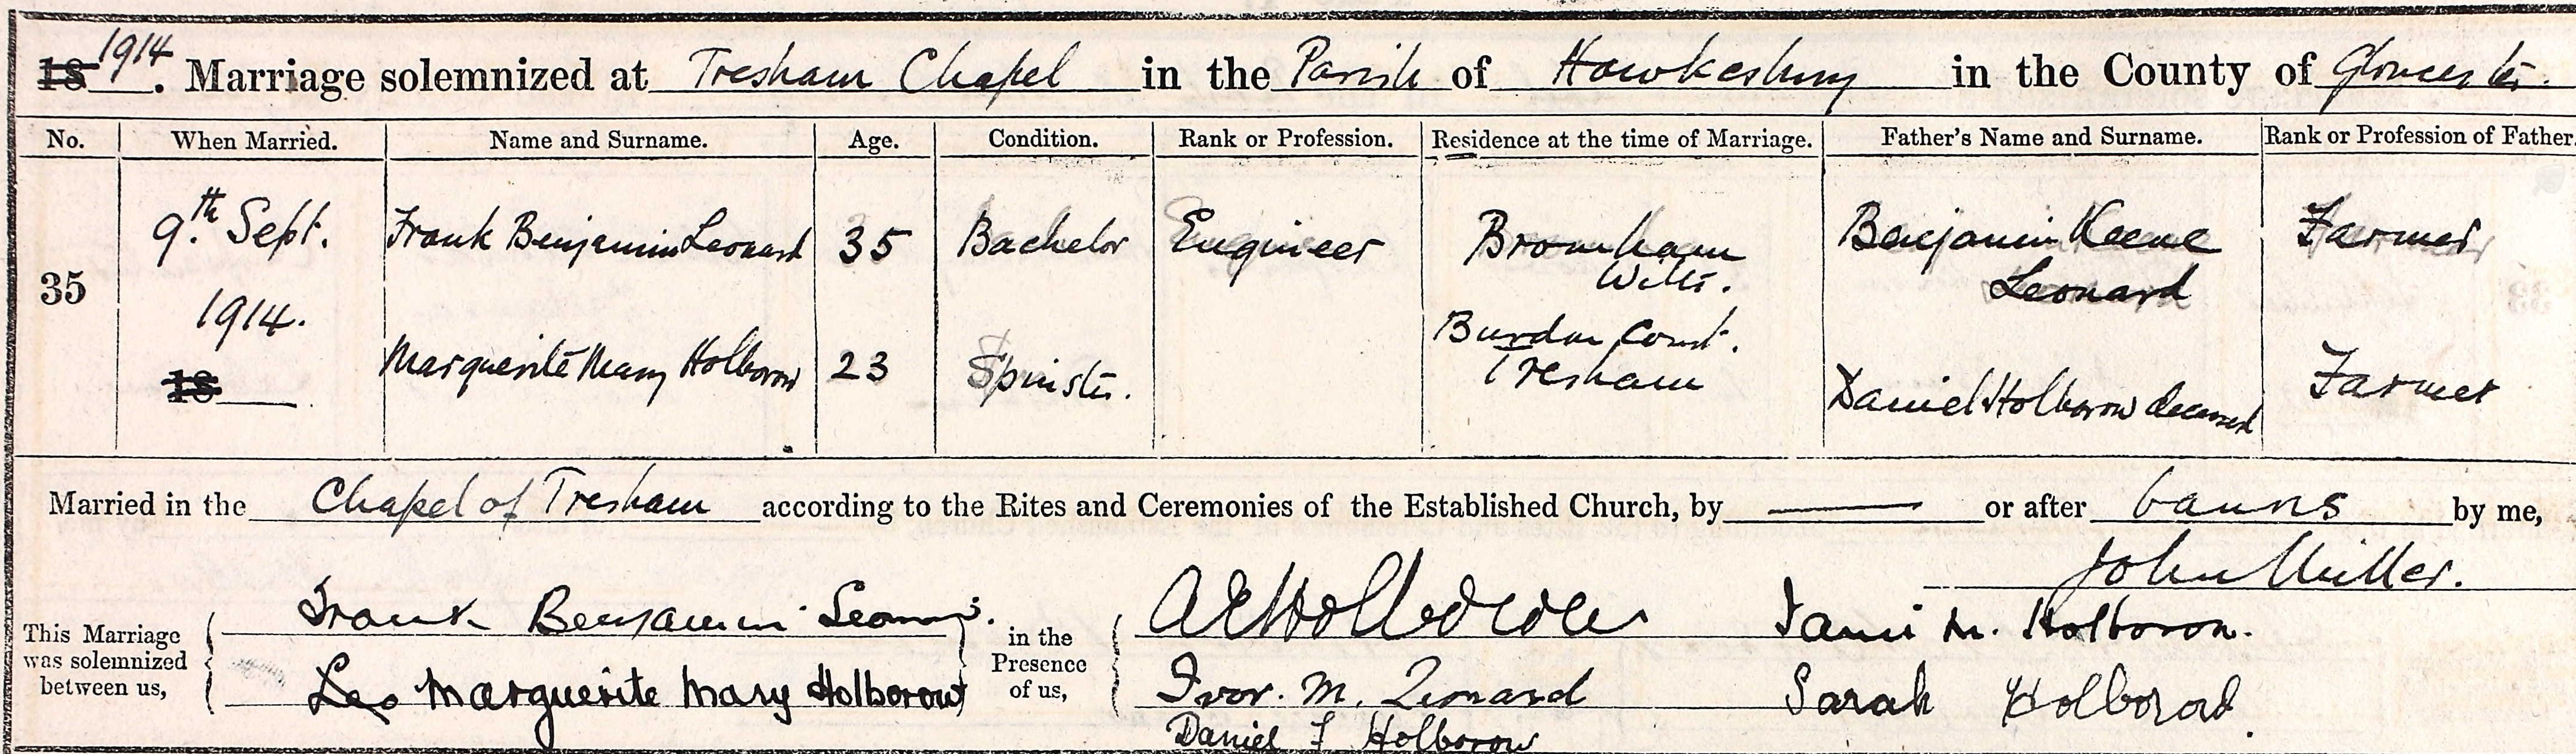 18 1914. Marriage solemnized at Tresham Chapel in the Parish of Hawkesbury in the County of Gloucester.
No. When Married. Name and Surname. Age. Condition. Rank or Profession. Residence at the time of Marriage. Father's Name and Surname. Rank or Profession of Father.
35 9.th Sept. 1914. 18
Frank Benjamin Leonard 35 Bachelor Engineer Bromham Wilts. Benjamin Keene Leonard Farmer
Marguerite Mary Holborow 23 Spinster. Court. Tresham Daniel Holborow deceased Farmer
Married in the Chapel of Tresham according to the Rites and Ceremonies of the Established Church, by or after banns by me,
John Miller.
This Marriage was solemnized between us,
Frank Benjamin Leonard
Leo Marguerite Mary Holborow
in the Presence of us,
Holborow M. Holborow.
Ivor. M. Leonard Sarah Holborow.
Daniel F Holborow